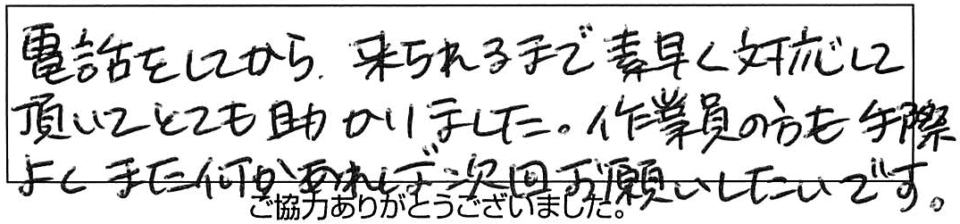 電話をしてから、来られるまで素早く対応して
頂いてとても助かりました。作業員の方も手際
よくまた何かあれば次回お願いしたいです。
ご協力ありがとうございました。